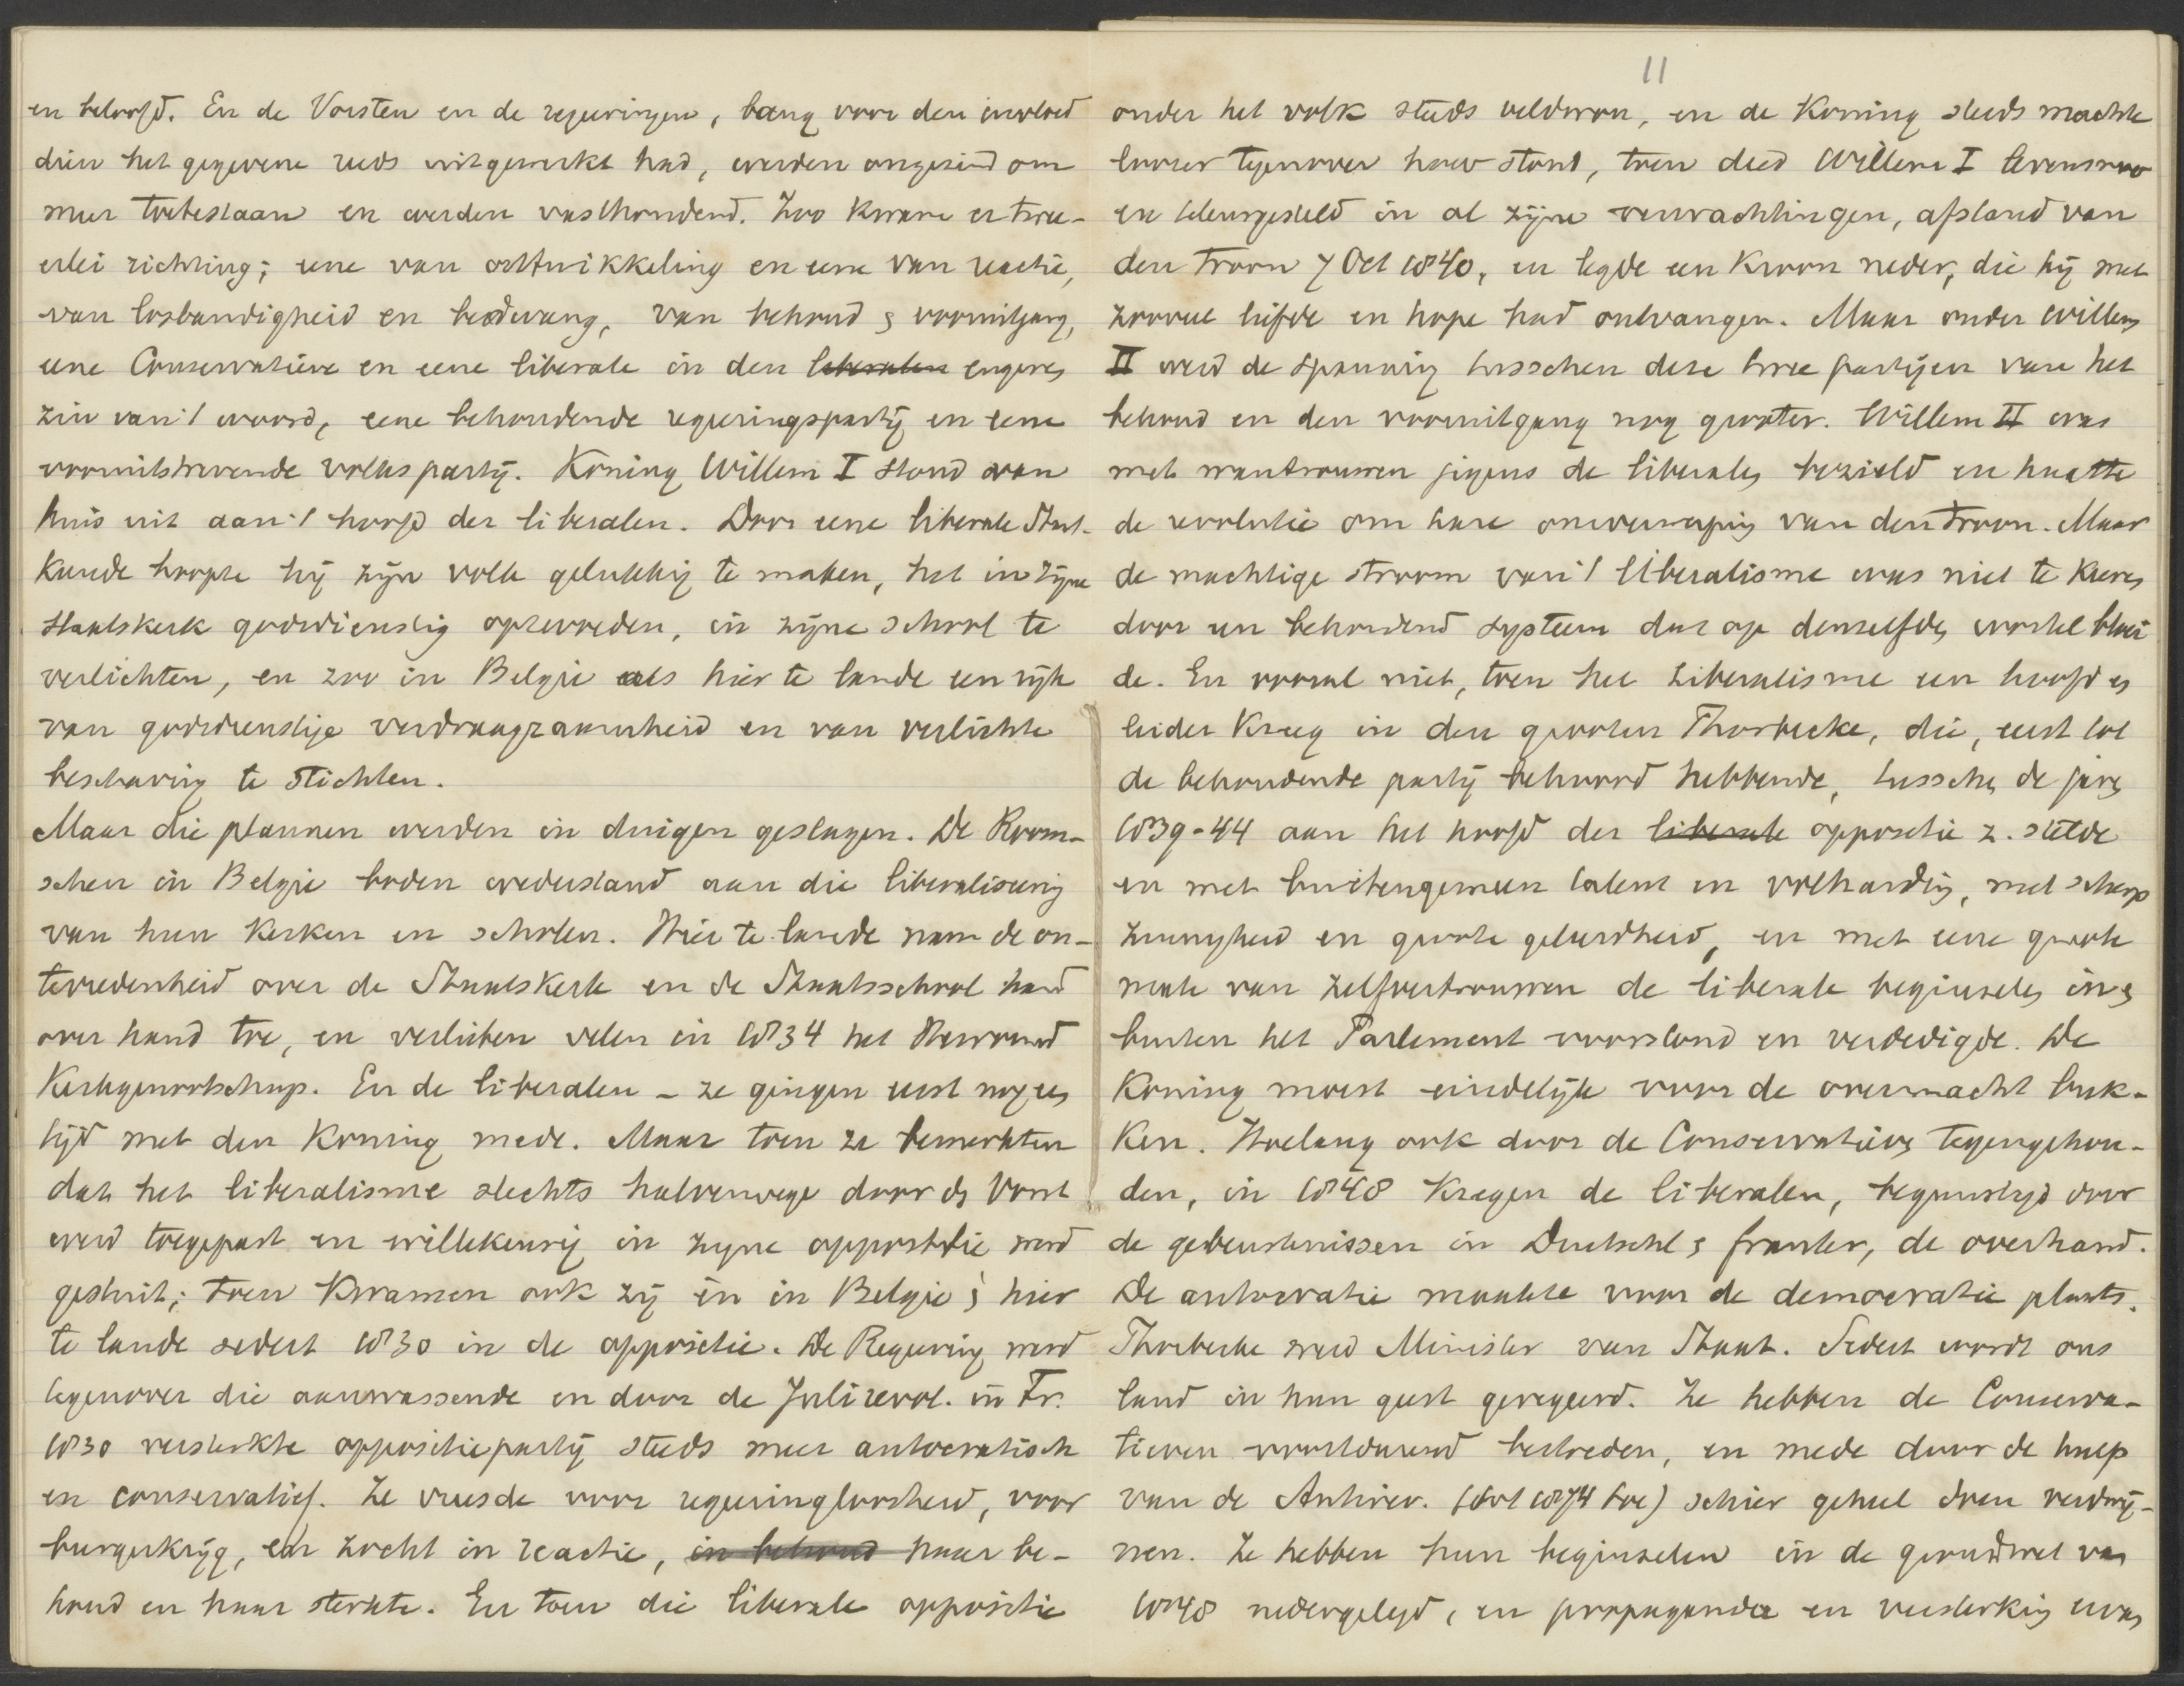 en beloofd. En de Vorsten en de regeringen, bang voor den invloed
dien het gegevene reeds uitgewerkt had, werden ongezind om
meer toetestaan en werden vasthoudend. Zoo kwam er twee-
erlei richting; eene van ontwikkeling en eene van reactie,
van losbandigheid en bedwang, van behoud & vooruitgang,
eene Conservatieve en eene liberale in den liberalen engeren
zin van 't woord, eene behoudende regeringspartij en eene
vooruitstrevende volkspartij. Koning Willem I stond van
huis uit aan 't hoofd der liberalen. Door eene liberale Staat-
kunde hoopte hij zijn volk gelukkig te maken, het in zijne
staatskerk godsdienstig optevoeden, in zijne school te
verlichten, en zoo in Belgie als hier te lande een rijk
van godsdienstige verdraagzaamheid en van verlichte
beschaving te stichten.
Maar die plannen werden in duigen geslagen. De Room-
schen in Belgie boden wederstand aan die liberalisering
van hun kerken en scholen. Hier te lande nam de on-
tevredenheid over de Staatskerk en de Staatsschool hand
over hand toe, en verlieten velen in 1834 het Hervormd
Kerkgenootschap. En de liberalen - ze gingen eerst nog een
tijd met den Koning mede. Maar toen ze bemerkten
dat het liberalisme slechts halverwege door den Vorst
werd toegepast en willekeurig in zijne oppositie werd
gestuit; toen kwamen ook zij èn in Belgie & hier
te lande sedert 1830 in de oppositie. De Regering werd
tegenover die aanwassende en door de Julirevol. in Fr.
1830 versterkte oppositiepartij steeds meer autocratisch
en conservatief. Ze vreesde voor regeringloosheid, voor
burgerkrijg, en zocht in reactie, in behoud naar be-
houd en haar sterkte. En toen die liberale oppositie
11
onder het volk steeds veldwon, en de Koning steeds machte
loozer tegenover haar stond, toen deed Willem I levensmoe
en teleurgesteld in al zijne verwachtingen, afstand van
den troon 7 Oct 1840, en legde een Kroon neder, die hij met
zooveel liefde en hope had ontvangen. Maar onder Willem
II werd de spanning tusschen deze twee partijen van het
behoud en den vooruitgang nog grooter. Willem II was
met wantrouwen jegens de liberalen bezield en haatte
de revolutie om hare omverwerping van den troon. Maar
de machtige stroom van 't liberalisme was niet te keren
door een behoudend systeem dat op denzelfden wortel bloei
de. En vooral niet, toen het Liberalisme een hoofd en
leider kreeg in den grooten Thorbecke, die, eerst tot
de behoudende partij behoord hebbende, tusschen de jaren
1839-44 aan het hoofd der liberale oppositie z. stelde
en met buitengemeen talent en volharding, met scherp
zinnigheid en groote geleerdheid, en met eene groote
mate van zelfvertrouwen de liberale beginselen in &
buiten het Parlement voorstond en verdedigde. De
Koning moest eindelijk voor de overmacht buk-
ken. Hoelang ook door de Conservatieven tegengehou-
den, in 1848 kregen de liberalen, begunstigd door
de gebeurtenissen in Duitschl & frankr, de overhand.
De autocratie maakte voor de democratie plaats.
Thorbecke werd Minister van Staat. Sedert wordt ons
land in hun geest geregeerd. Ze hebben de Conserva-
tieven voortdurend bestreden, en mede door de hulp
van de Antirev. (tot 1874 toe) schier geheel doen verdwij-
nen. Ze hebben hun beginselen in de grondwet van
1848 nedergelegd, en propaganda en versterking ervan